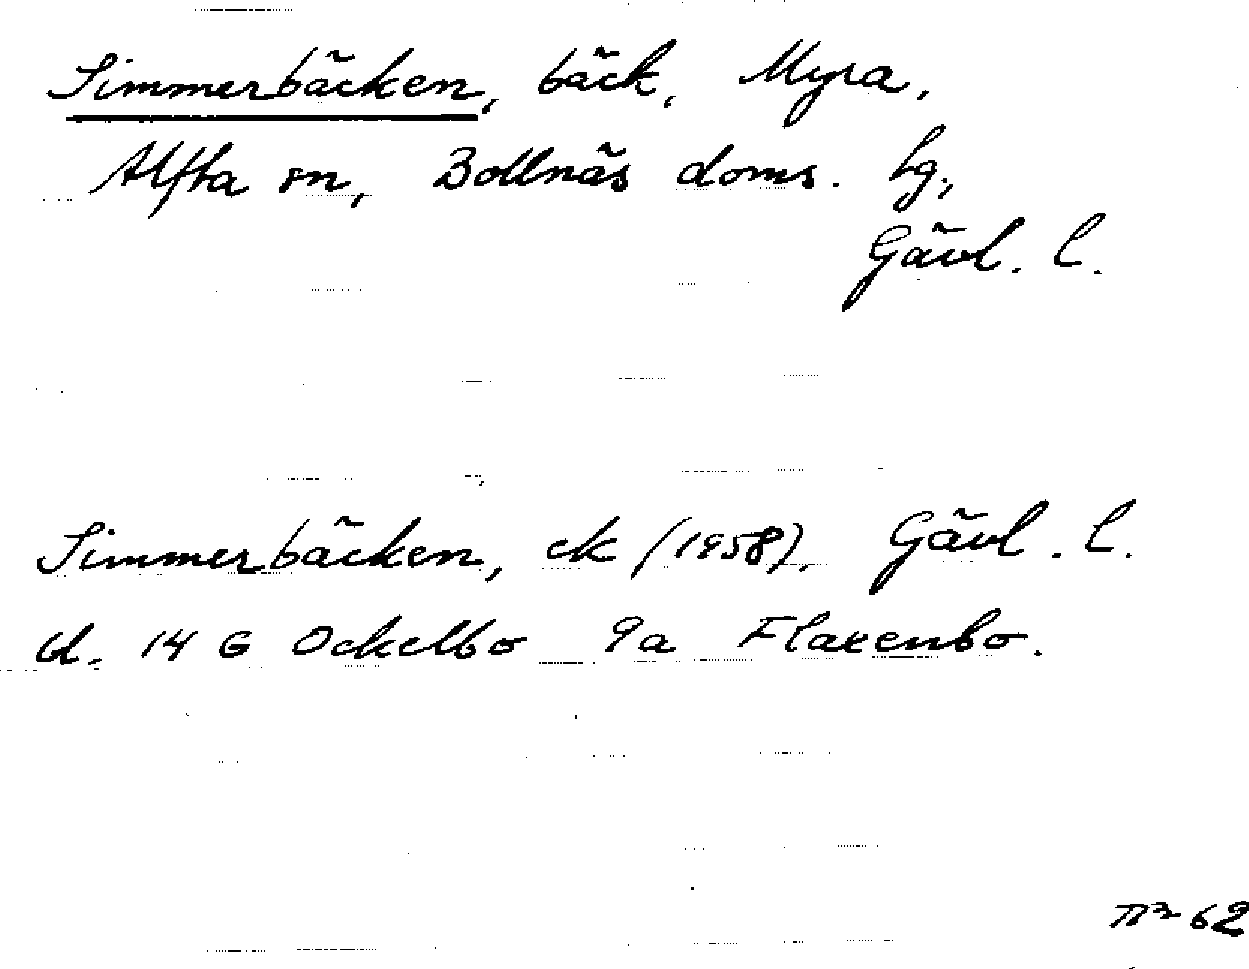 Simmerbäcken, bäck, Myra,
Alfta sn, Bollnäs doms. hg,
Gävl. l.
Simmerbäcken, ek (1958). Gävl. l.
bl. 14 G Ockelbo 9a Flaxenbo.
62